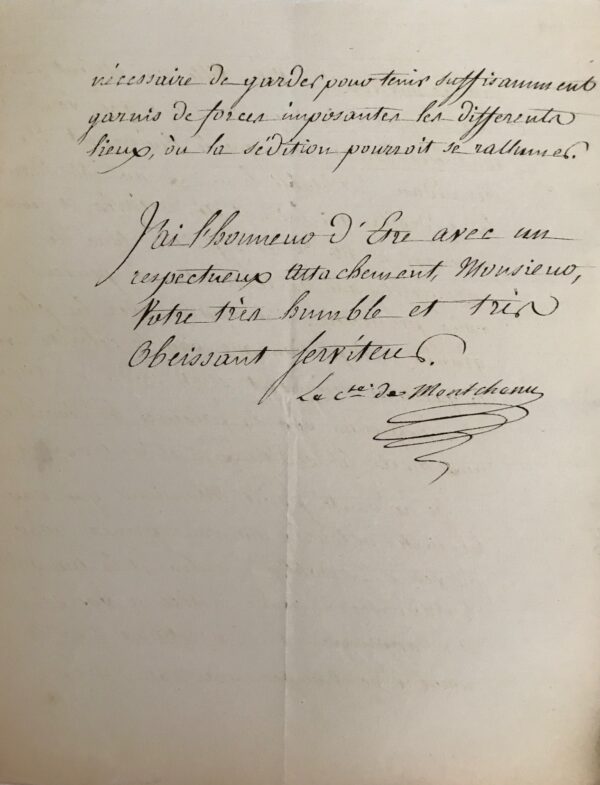 nécessaire de garder pour tenir suffisamment
garnis de forces imposantes les differents
lieux, òu la sédition pourroit se rallumer.
J'ai l'honneur d'Etre avec un
respectueux Attachement, Monsieur,
Votre très humble et très
Obeissant serviteur.
Le cte. de Montchenu